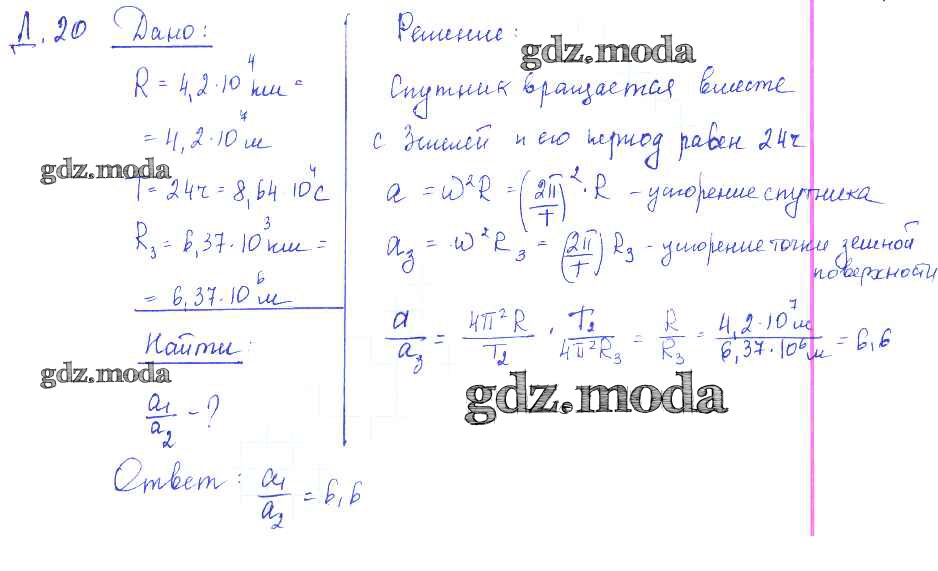 Д. 20 Дано:
R = 4,2·10⁴ км =
= 4,2·10⁷ м
T = 24ч = 8,64·10⁴ с
R₃ = 6,37·10³ км =
= 6,37·10⁶ м
Найти:
a₁/a₂ - ?
Решение:
Спутник вращается вместе
с Землей и его период равен 24ч
a = ω²R = (2π/T)²·R - ускорение спутника
a₃ = ω²R₃ = (2π/T) R₃ - ускорение точки земной
поверхности
a/a₃ = 4π²R/T₂ · T₂/4π²R₃ = R/R₃ = 4,2·10⁷м/6,37·10⁶м = 6,6
Ответ: a₁/a₂ = 6,6
gdz.moda
gdz.moda
gdz.moda
gdz.moda